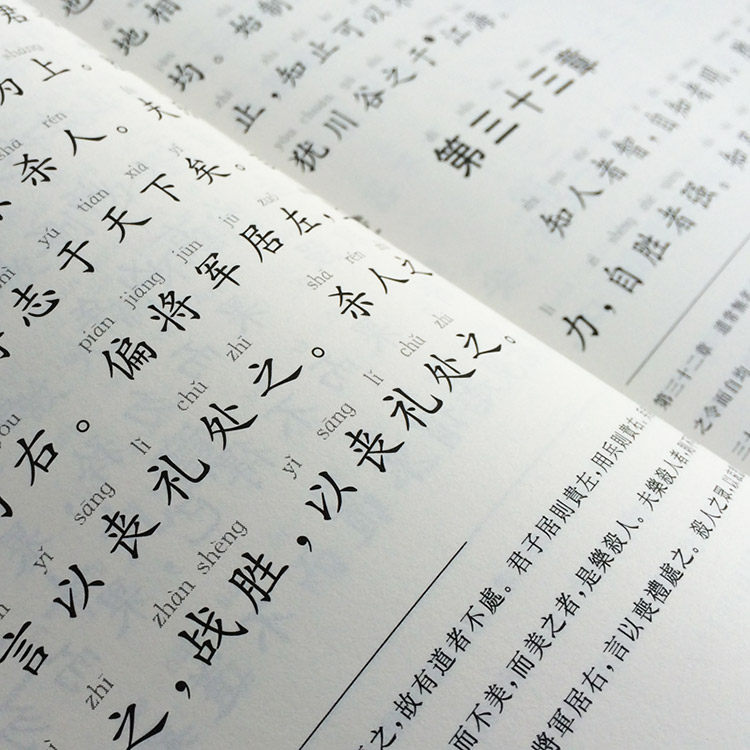 shàng
为上。
shā rén
杀人。夫
yú tiān xià yǐ
志于天下矣。
piān jiāng jūn jū zuǒ
右。偏将军居左，
yǐ sāng lǐ chǔ zhī shā rén
言以丧礼处之。杀人之
zhī zhàn shèng yǐ sāng lǐ chǔ zhī
之，战胜，以丧礼处之。
之，故有道者不處。君子居則貴左，用兵則貴右。
而不美，而美之者，是樂殺人。夫樂殺人者
將軍居右，言以喪禮處之。殺人之眾，以
地相
均。始制
止，知止可以
犹川谷之于江海
第三十三章
知人者智，自知者明。
lì
力，自胜者强。知
第三十二章 道常無
之令而自均